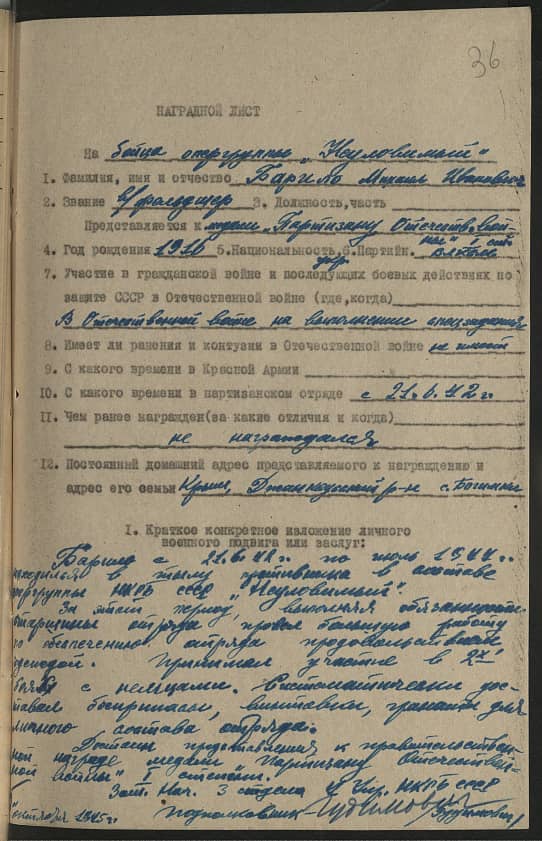 36
НАГРАДНОЙ ЛИСТ
На бойца опергруппы „Неуловимый"
1. Фамилия, имя и отчество Барило Михаил Иванович
2. Звание 3. Должность, часть
Представляется к медали „Партизану Отечествен-
ной" I ст.
4. Год рождения 1916 5. Национальность, 6. Партийн.
укр.
7. Участие в гражданской войне и последующих боевых действиях по
защите СССР в Отечественной войне (где, когда)
В Отечественной войне на выполнении спецзадания
8. Имеет ли ранения и контузии в Отечественной войне не имеет
9. С какого времени в Красной Армии
10. С какого времени в партизанском отряде с 21.6.42 г.
11. Чем ранее награжден (за какие отличия и когда)
не награждался
12. Постоянный домашний адрес представляемого к награждению и
адрес его семьи Крым, Джанкойский р-н с.
I. Краткое конкретное изложение личного
военного подвига или заслуг:
Барило с 21.6.42 г. по июль 1944 г.
находился в тылу противника в составе
опергруппы НКГБ СССР „Неуловимый".
За этот период, выполняя обязанности
старшины отряда провел большую работу
по обеспечению отряда продовольствием
одеждой. Принимал участие в 2х
боях с немцами. Систематически дос-
тавал боеприпасы, винтовки, гранаты для
личного состава отряда.
Достоин представления к правительствен-
ной награде медали „Партизану Отечествен-
ной войны" I степени.
Зам. Нач. 3 отдела 4 Упр. НКГБ СССР
подполковник
октября 1945 г.